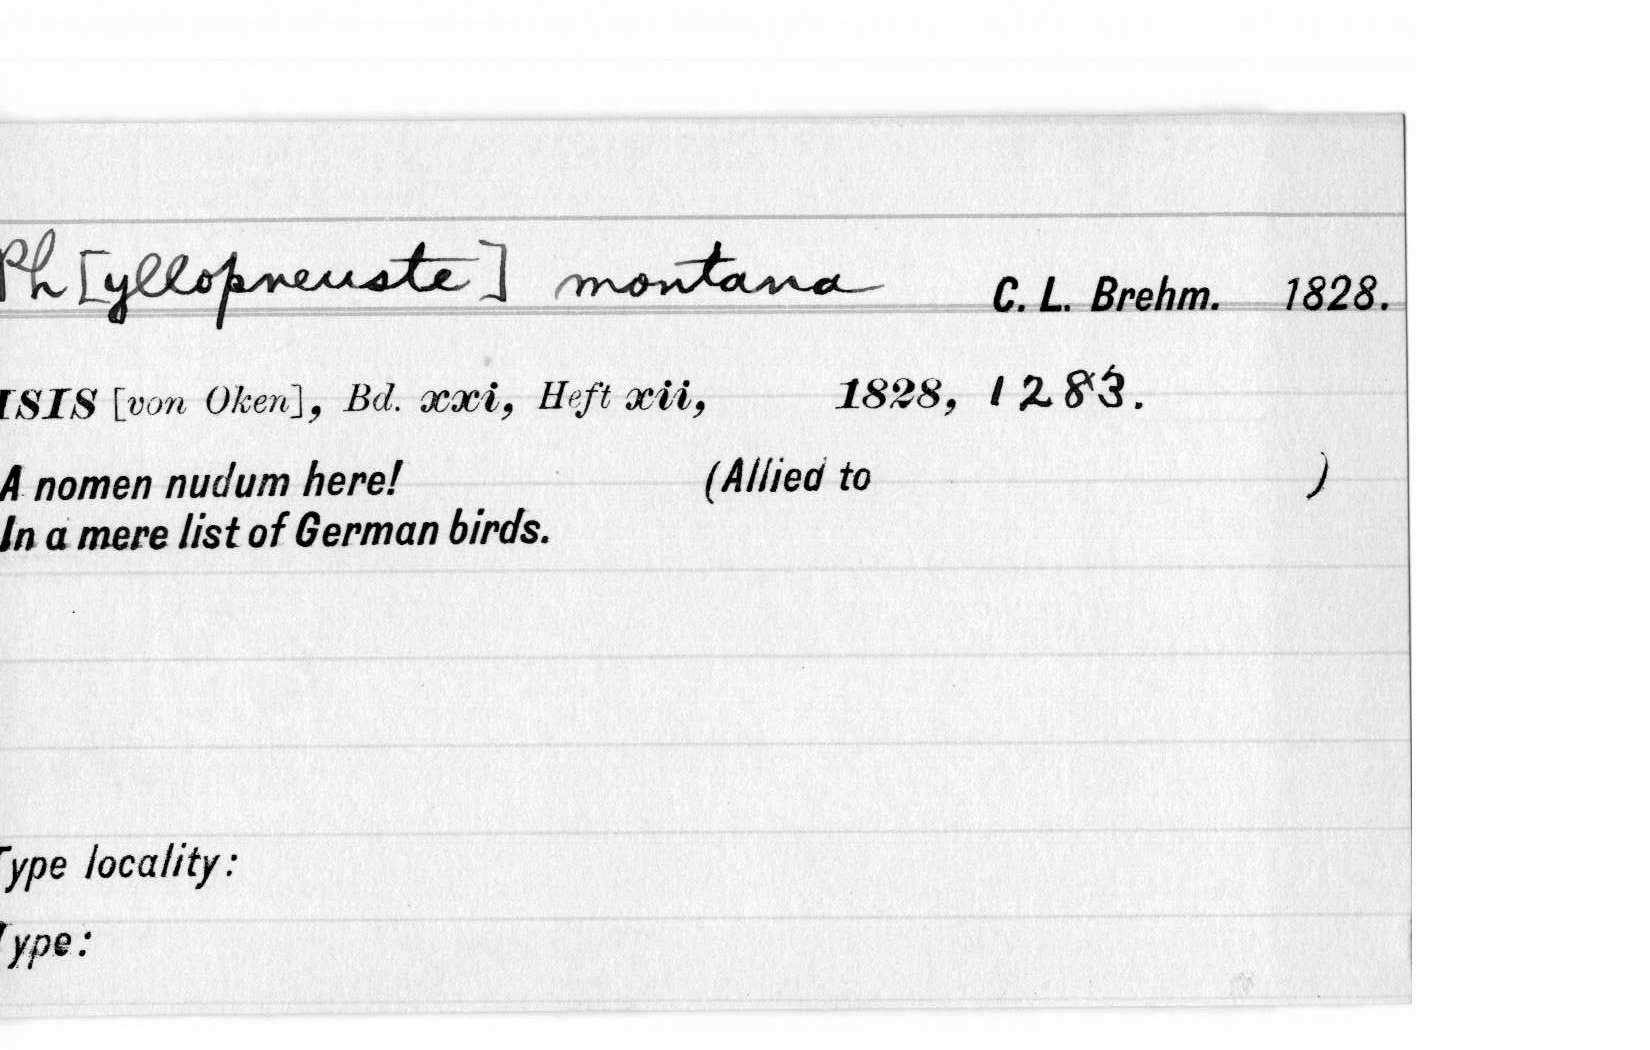 Ph[yllopneuste] montana C. L. Brehm. 1828.
ISIS [von Oken], Bd. xxi, Heft xii, 1828, 1283.
A nomen nudum here! (Allied to )
In a mere list of German birds.
Type locality:
Type: